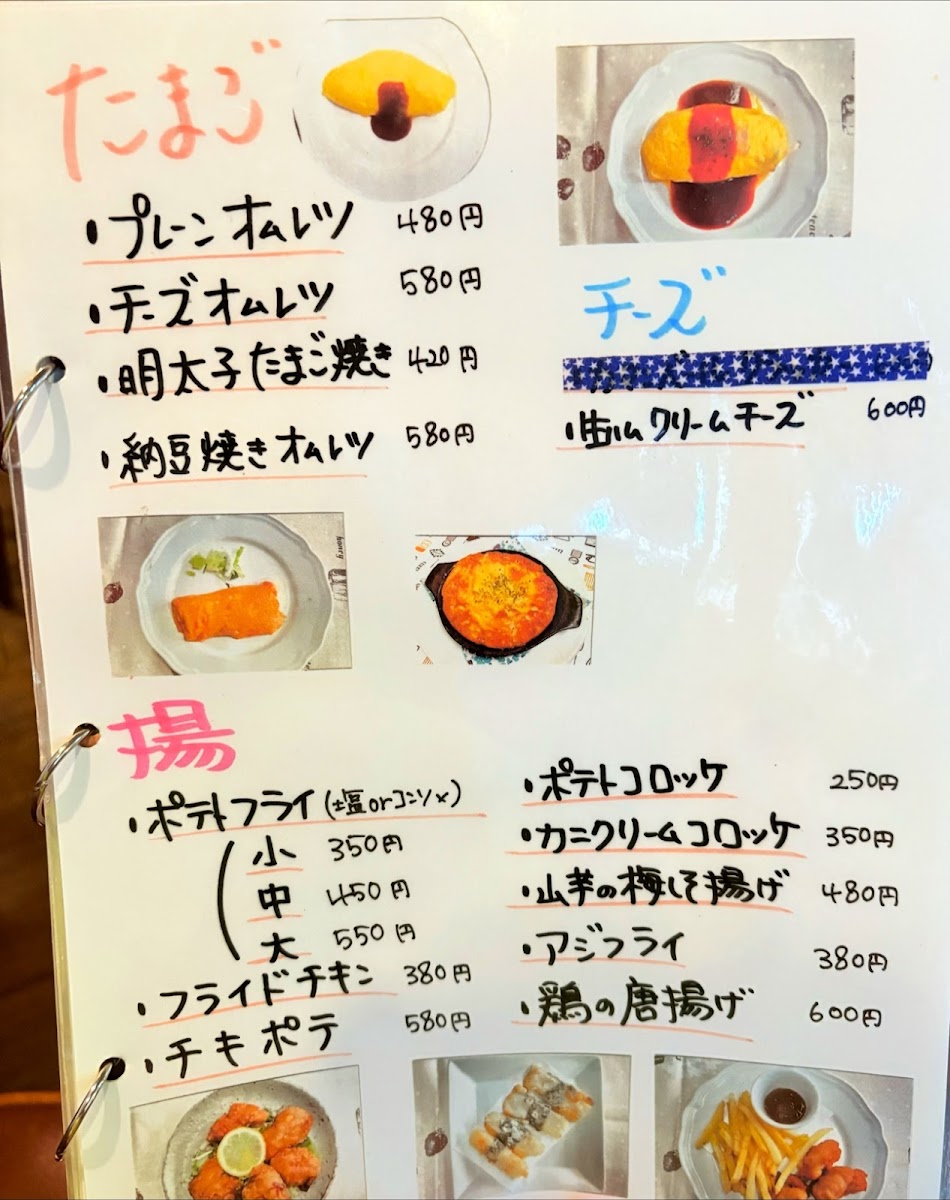 たまご
・プレーンオムレツ 480円
・チーズオムレツ 580円
・明太子たまご焼き 420円
・納豆焼きオムレツ 580円
チーズ
・生ハムクリームチーズ 600円
揚
・ポテトフライ(塩orコンソメ)
小 350円
中 450円
大 550円
・フライドチキン 380円
・チキポテ 580円
・ポテトコロッケ 250円
・カニクリームコロッケ 350円
・山芋の梅しそ揚げ 480円
・アジフライ 380円
・鶏の唐揚げ 600円